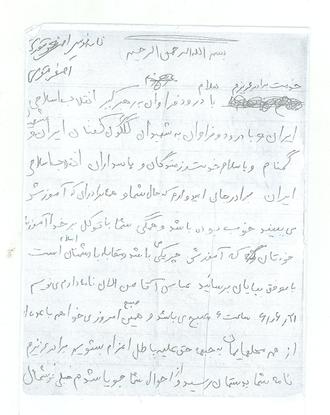 بسم الله الرحمن الرحیم
خدمت برادر عزیزم سلام
با درود فراوان به رهبر کبیر انقلاب اسلامی
ایران و با درود فراوان به شهیدان گلگون کفنان ایران و
گمنام و با سلام خدمت رزمندگان و پاسداران انقلاب اسلامی
ایران برادرهای امیدوارم که حال شما و همه برادران که آموزش
می بینید خوب بوده باشد و همگی شما با توکل بر خدا آموزش
خودتان که آموزش چریکی می باشد و مقابله با دشمنان اسلام است
با موفقیت بپایان برسانید عباس آقا من الان نامه دارم می نویسم
ساعت ۶ صبح می باشد و همین امروز می خواهم با عده ای
از هم محلیهایمان به جبهه حق علیه باطل اعزام شویم برادر عزیزم
نامه شما بدستمان رسید و از احوال شما جویا شدم خیلی خوشحال